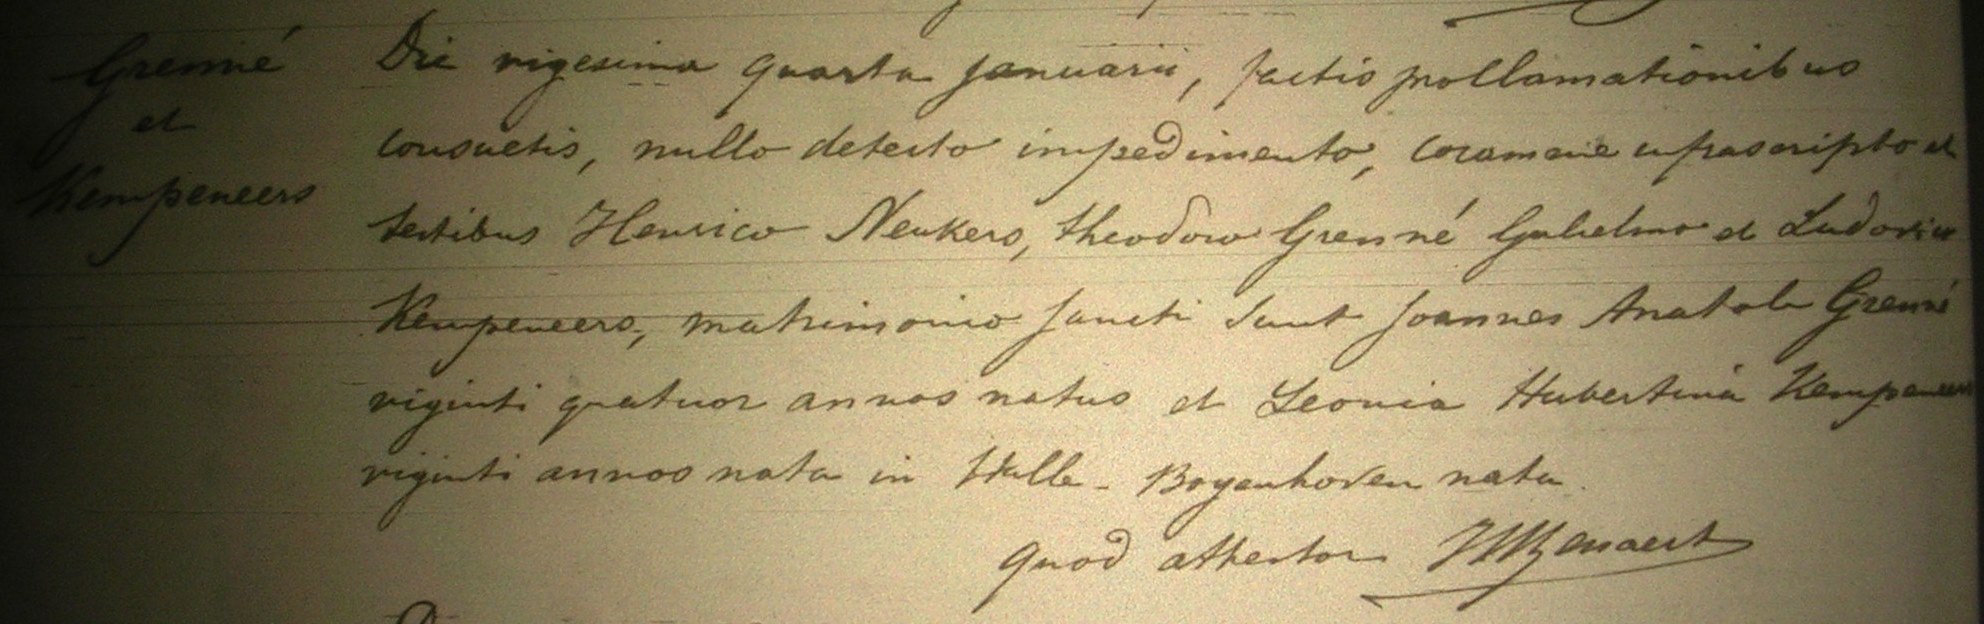 Grenné
et
Kempeneers
Die vigesima quarta januarii, factis prollamationibus
consuetis, nullo detecto impedimento, coram me infrascripto et
testibus Henrico Neukers, theodoro Grenné Gulielmo et Ludovico
Kempeneers, matrimonio juncti sunt Joannes Anatole Grenné
viginti quatuor annos natus et Leonia Hubertina Kempeneers
viginti annos nata in Halle-Boyenhoven nata.
quod attestor